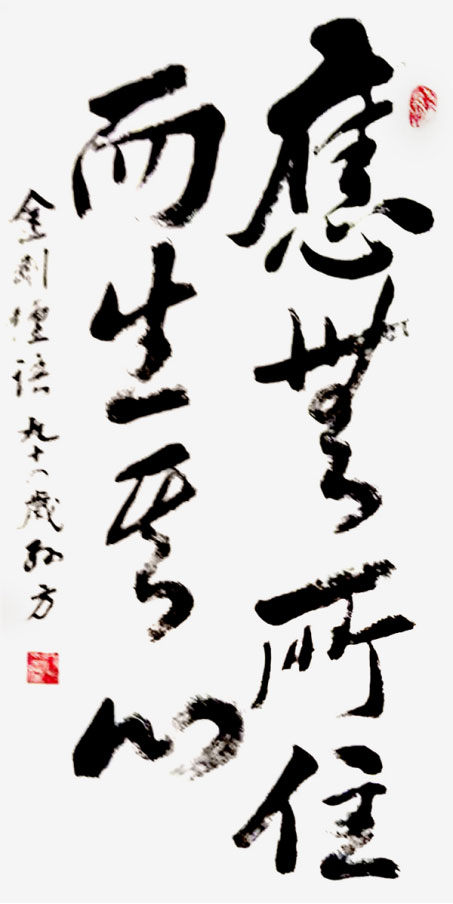 應無所住
而生其心
金剛經語 九十八歲 孫方